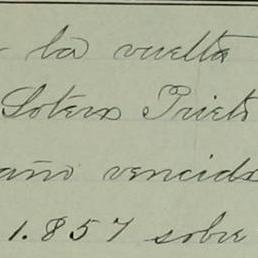 la vuelta
Sotero Prieto
año vencido
1.857 sobre